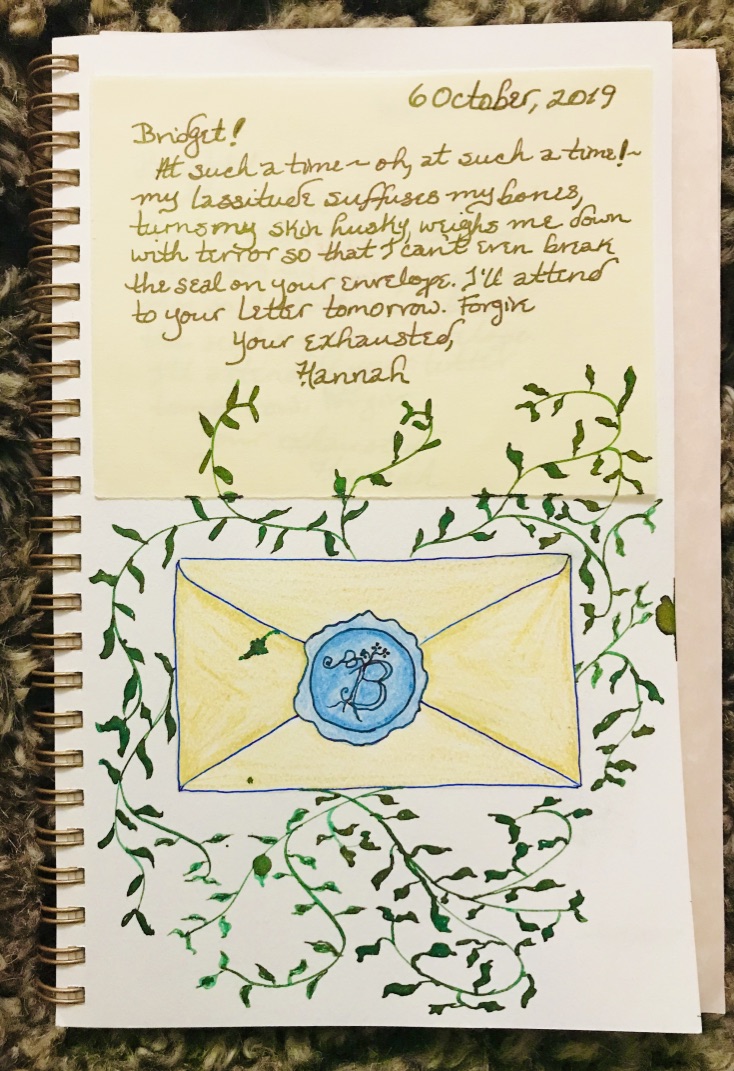 6 October, 2019
Bridget!
At such a time ~ oh, at such a time! ~
my lassitude suffuses my bones,
turns my skin husky, weighs me down
with terror so that I can't even break
the seal on your envelope. I'll attend
to your letter tomorrow. Forgive
your exhausted,
Hannah
B